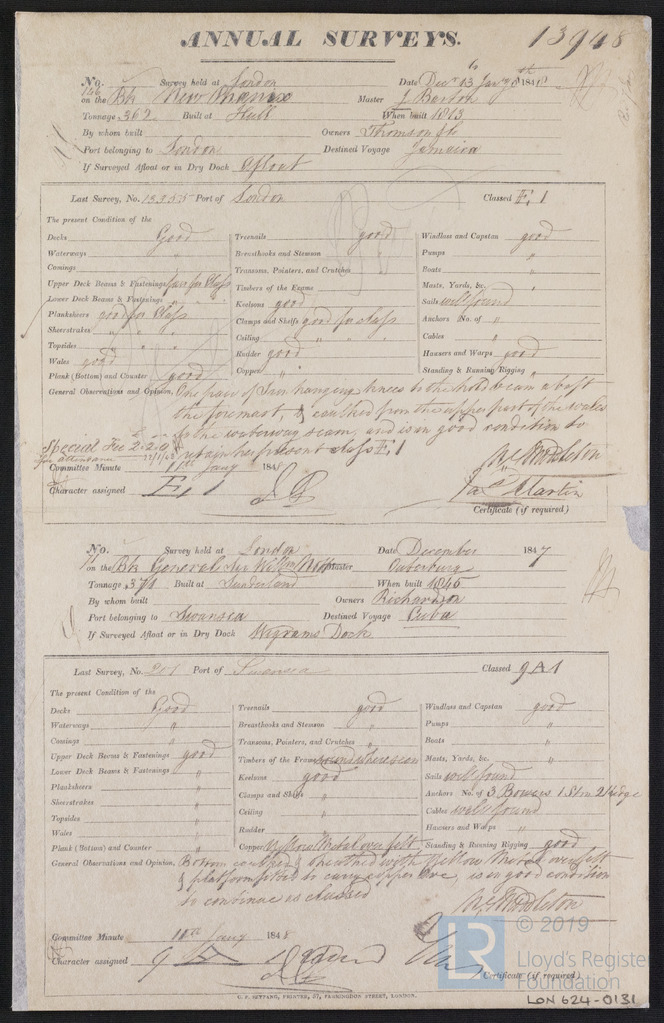 ANNUAL SURVEYS.
13948
No. Survey held at London Date Decr 13 to Jany 8th 1848
on the Bk New Phoenix Master J Barton
Tonnage 362 Built at Hull When built 1813
By whom built Owners Thomson & Co
Port belonging to London Destined Voyage Jamaica
If Surveyed Afloat or in Dry Dock Afloat
Last Survey, No. 13955 Port of London Classed E. 1
The present Condition of the
Decks Good
Waterways "
Comings "
Upper Deck Beams & Fastenings fair for Class
Lower Deck Beams & Fastenings " " "
Planksheers good for Class
Sheerstrakes " " "
Topsides " " "
Wales good
Plank (Bottom) and Counter good
Treenails good
Breasthooks and Stemson "
Transoms, Pointers, and Crutches "
Timbers of the Frame
Keelsons good
Clamps and Shelfs good for class
Ceiling " " "
Rudder good
Copper "
Windlass and Capstan good
Pumps "
Boats "
Masts, Yards, &c. "
Sails well found
Anchors No. of "
Cables "
Hausers and Warps good
Standing & Running Rigging "
General Observations and Opinion, One pair of Iron hanging knees to the hold beam abaft
the foremast, & caulked from the upper part of the wales
to the waterway seam, and is in good condition to
retain her present class E 1
Special Fee 2-2-0
for attendance
Wm Middleton
Committee Minute 11th Jany 1848
Character assigned E. 1
Jas Martin
Certificate (if required)
No. Survey held at London Date December 1847
on the Bk General Sir Willm Nott Master Outerburg
Tonnage 371 Built at Sunderland When built 1845
By whom built Owners Richardson
Port belonging to Swansea Destined Voyage Cuba
If Surveyed Afloat or in Dry Dock Wigrams Dock
Last Survey, No. 201 Port of Swansea Classed 9 A 1
The present Condition of the
Decks Good
Waterways "
Comings "
Upper Deck Beams & Fastenings good
Lower Deck Beams & Fastenings "
Planksheers "
Sheerstrakes "
Topsides "
Wales "
Plank (Bottom) and Counter "
Treenails good
Breasthooks and Stemson "
Transoms, Pointers, and Crutches "
Timbers of the Frame where seen
Keelsons good
Clamps and Shelfs "
Ceiling "
Rudder "
Copper Yellow Metal over felt
Windlass and Capstan good
Pumps "
Boats "
Masts, Yards, &c. "
Sails well found
Anchors No. of 3 Bowers 1 Stm 2 Kedge
Cables well found
Hausers and Warps "
Standing & Running Rigging good
General Observations and Opinion, Bottom caulked & sheathed with Yellow Metal over felt
& platform fitted to carry copper ore, is in good condition
to continue as classed
Wm Middleton
Committee Minute 11th Jany 1848
Character assigned 9 A
Certificate (if required)
C. F. SEYFANG, PRINTER, 57, FARRINGDON STREET, LONDON.
© 2019
LR
Lloyd's Register
Foundation
LON 624-0131